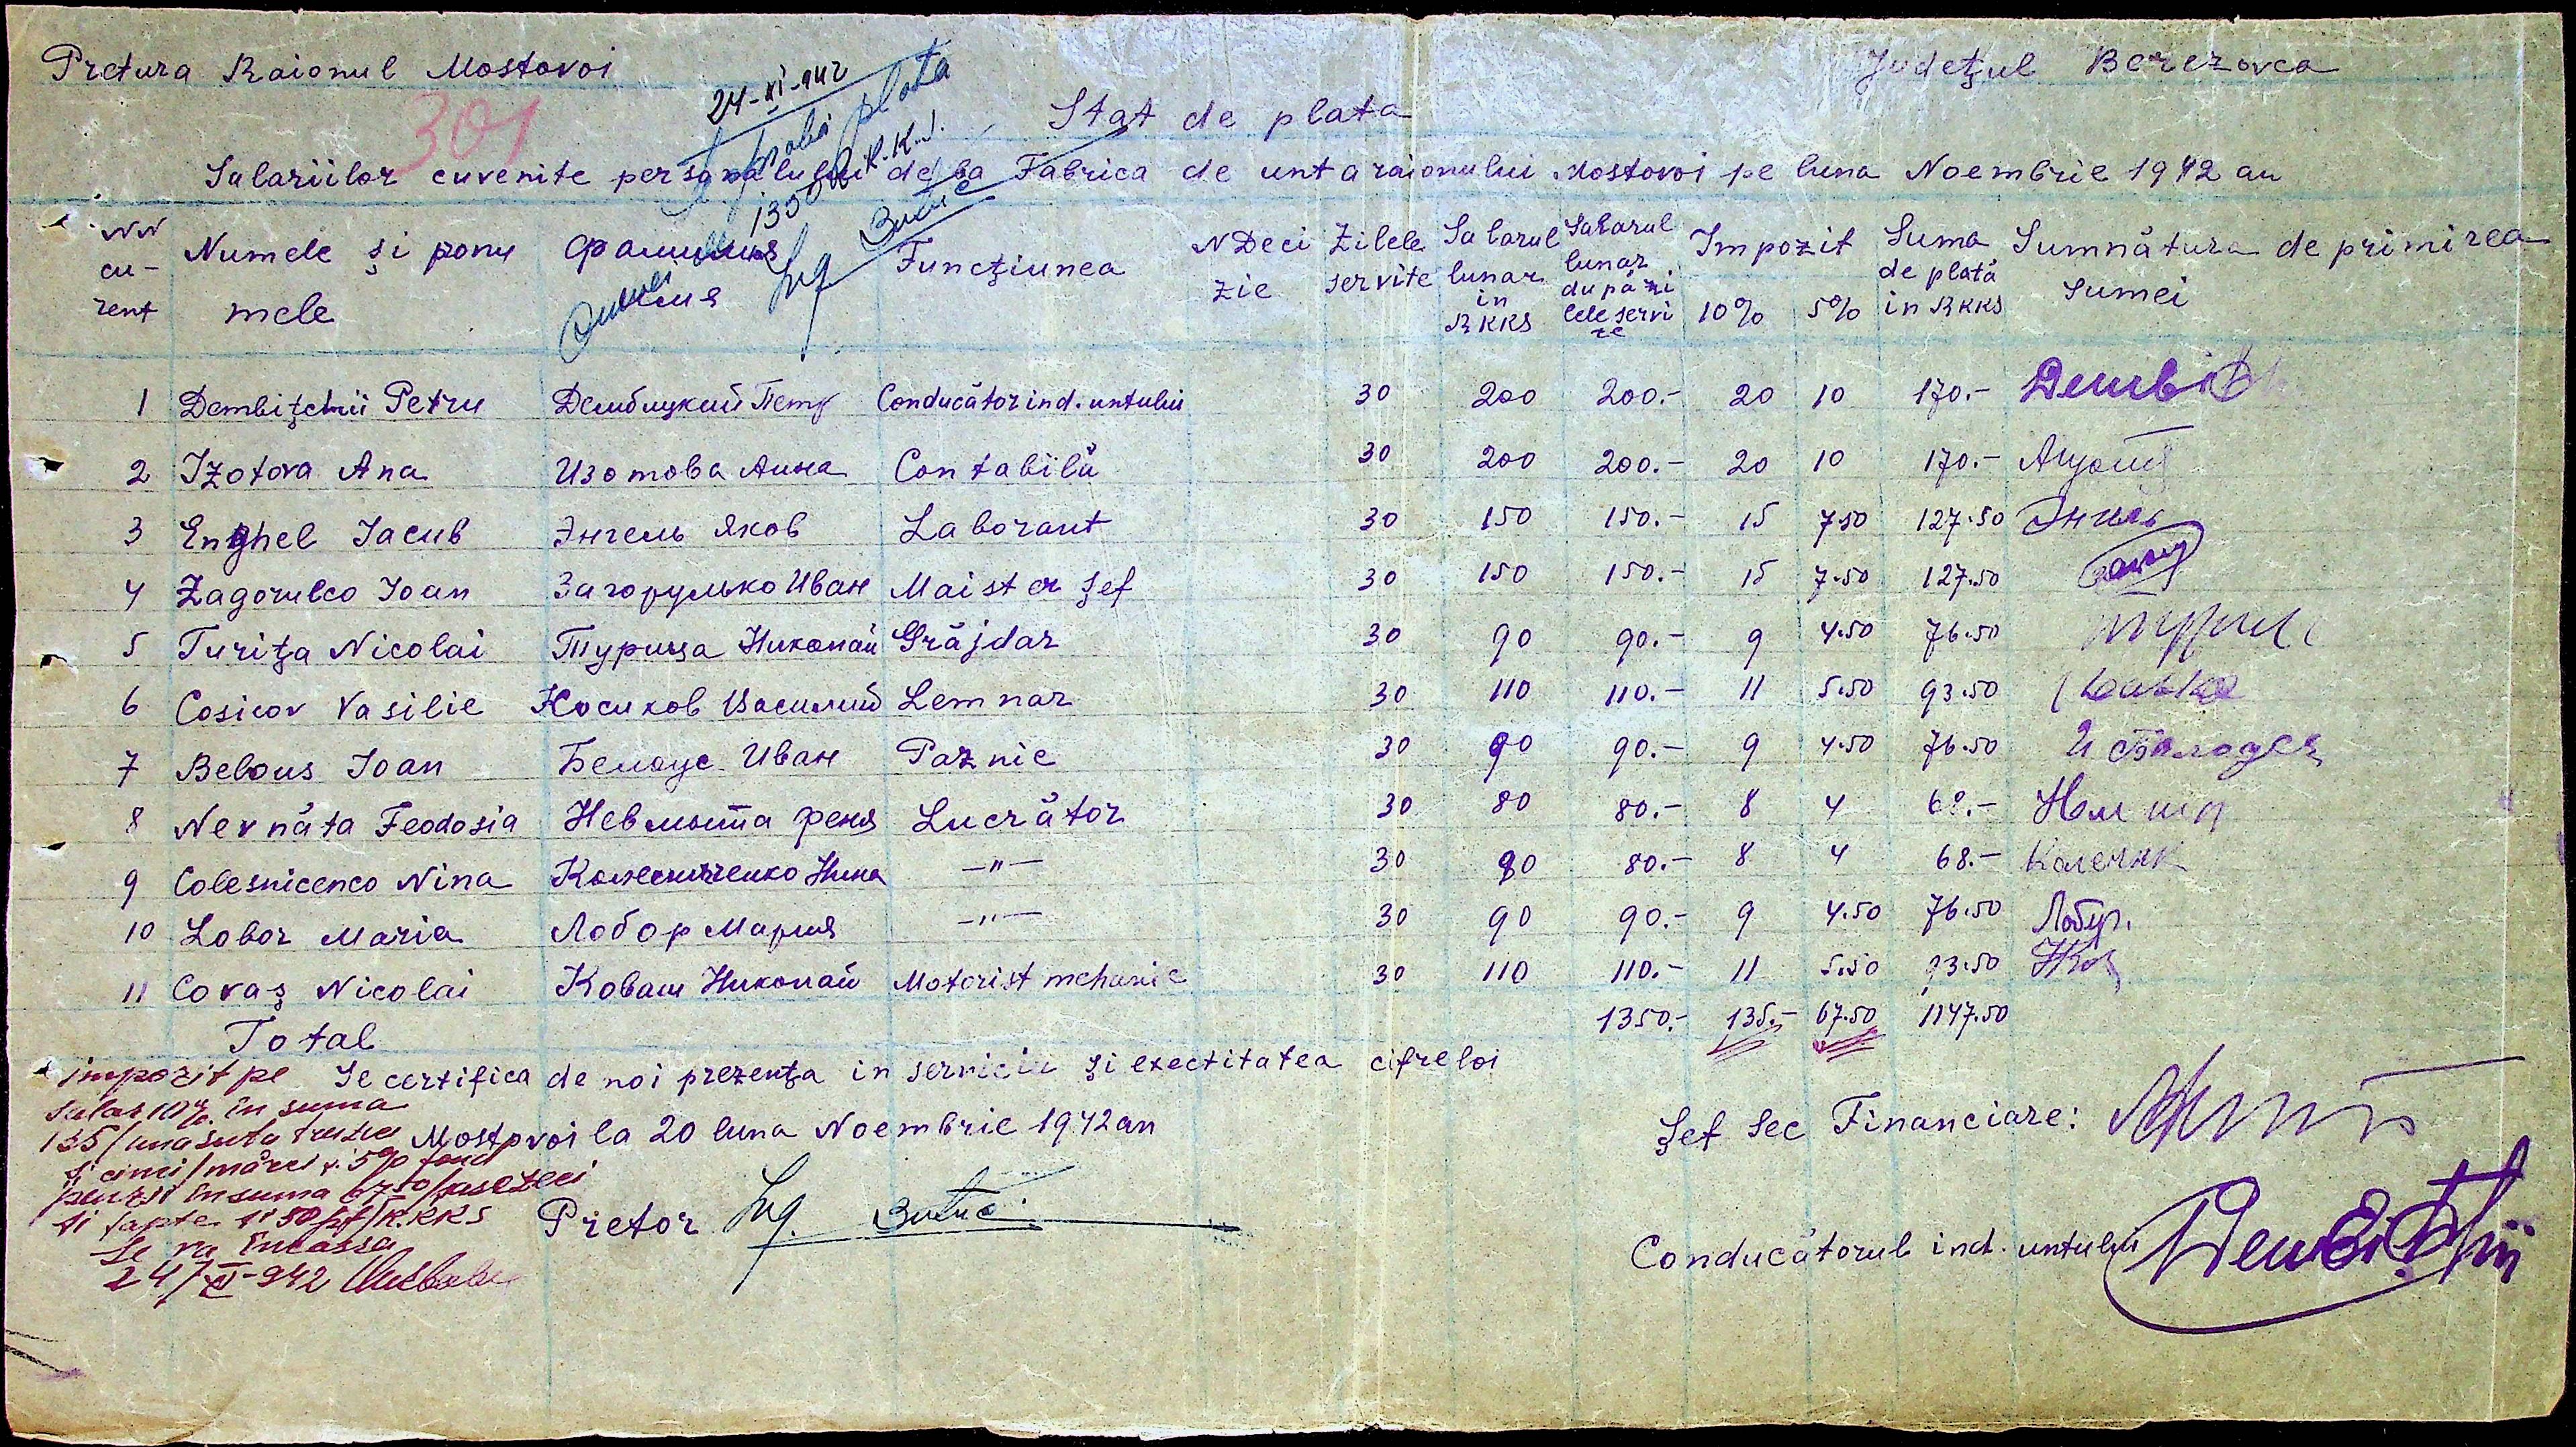 Pretura Raionul Mostovoi
Judeţul Berezovca
301
24-XI-942
plata
Stat de plata
Salariilor cuvenite personalului de la Fabrica de unt a raionului Mostovoi pe luna Noembrie 1942 an
1350 R.K.K.S.
Ing. Butuc
NN curent
Numele şi ponu mele
Фамилия Имя
Funcţiunea
N Deci zie
Zilele servite
Salarul lunar in RKKS
Salarul lunar după zi lele servi te
Impozit 10% 5%
Suma de plată in RKKS
Sumnătura de primirea sumei
1 Dembiţchii Petru Дембицкий Петр Conducător ind. untului 30 200 200.- 20 10 170.- Дембіц
2 Izotova Ana Изотова Анна Contabilă 30 200 200.- 20 10 170.-
3 Enghel Iacub Энгель Яков Laborant 30 150 150.- 15 7.50 127.50 Энгель
4 Zagorulco Ioan Загорулько Иван Maister şef 30 150 150.- 15 7.50 127.50
5 Turiţa Nicolai Турица Николай Grăjdar 30 90 90.- 9 4.50 76.50
6 Cosicov Vasilie Косиков Василий Lemnar 30 110 110.- 11 5.50 93.50
7 Belous Ioan Белоус Иван Paznic 30 90 90.- 9 4.50 76.50
8 Nevnăta Feodosia Невмыта Феня Lucrător 30 80 80.- 8 4 68.-
9 Colesnicenco Nina Колесниченко Нина -"- 30 80 80.- 8 4 68.-
10 Lobor Maria Лобор Мария -"- 30 90 90.- 9 4.50 76.50 Лобур.
11 Covaş Nicolai Коваш Николай Motorist mehanic 30 110 110.- 11 5.50 93.50
Total 1350.- 135.- 67.50 1147.50
Se certifica de noi prezenţa in serviciu şi exectitatea cifreloi
Mostovoi la 20 luna Noembrie 1942 an
impozit pe
salar 10% in suma
135/una suta treizeci
şi cinci/mărci şi 5% fond
penzii in suma 67.50/şasezeci
si sapte si 50 pf/R.KKS
Se va incassa
24/XI-942
Pretor Ing. Butuc
Şef Sec Financiare:
Conducătorul ind. untului Дembiţchii